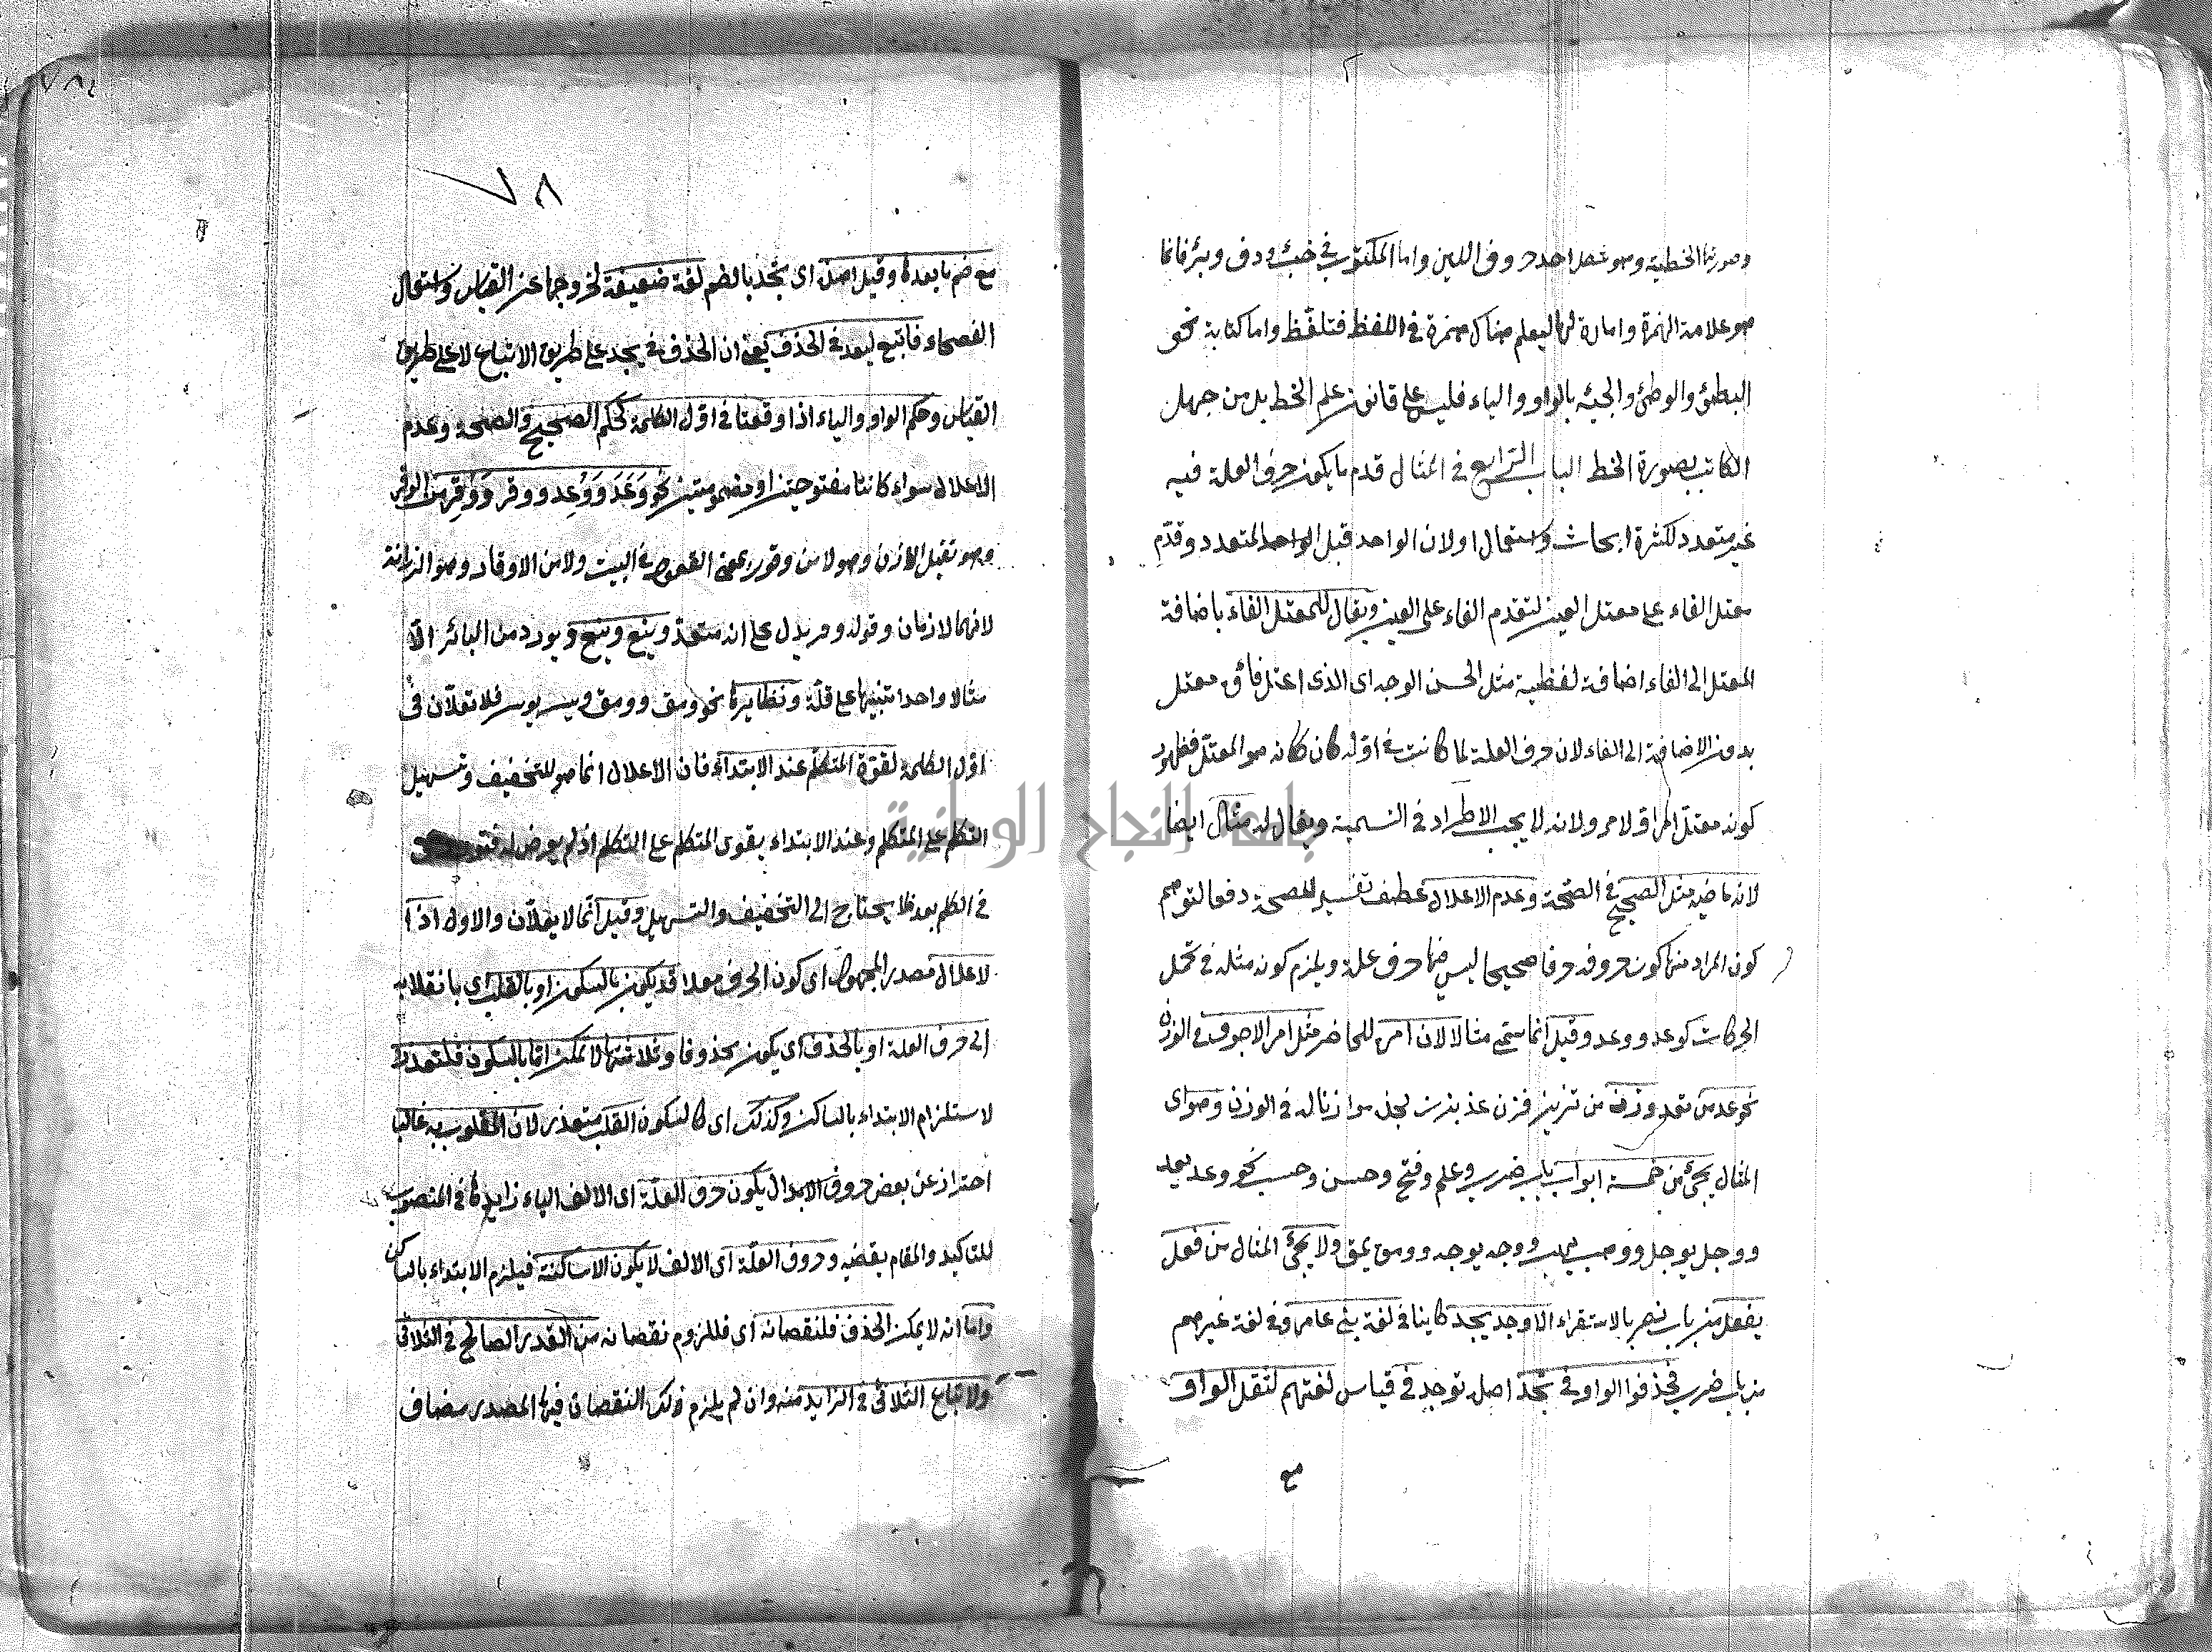 وصورتها الخطية وهو شكل احد حروف اللين واما المكتوب في خبء ودفء وبئر فانما
هو علامة الهمزة وامارة لها ليعلم هناك همزة في اللفظ فتلفظ واما كتابة نحو
البطئ والوطئ والجئه بالواو والياء فليس على قانون علم الخط بل من جهل
الكاتب بصورة الخط الباب الرابع في المثال قدم ما يكون حرف العلة فيه
غير متعدد لكثرة ابحاث واستعمال اولان الواحد قبل الواحد المتعدد وقدم
معتل الفاء على معتل العين لتقدم الفاء على العين ويقال للمعتل الفاء باضافة
المعتل الى الفاء اضافة لفظية مثل الحسن الوجه اى الذى اعتل فاؤه معتل
بدون الاضافة الى الفاء لان حرف العلة لما كانت في اوله كان كانه هو المعتل فظهور
كونه معتل لامر ولانه لا يجب الاطراد في التسمية ويقال له مثال ايضا
لانه ماضيه مثل الصحيح في الصحة وعدم الاعلال عطف تفسير للصحة دفعا لتوهم
كون المراد منها كون حروفه حرفا صحيحا ليس فيها حرف علة ويلزم كونه مثله في تحمل
الحركات كوعد ووعد وقيل انما سمى مثالا لان امره للحاضر مثل امر الاجوف في الوزن
نحو عد من تعد وزن من تزين فزن عد بزنة لجذ موازنا له في الوزن وهو اى
المثال يجئ من خمسة ابواب باب ضرب وعلم وفتح وحسن وحسب نحو وعد يعد
ووجل يوجل ووهب يهب ووجه يوجه وومق يمق ولا يجئ المثال من فعل
يفعل من باب نصر بالاستقراء الا وجد يجد كاينا في لغة بنى عامر وفي لغة غيرهم
من باب ضرب فحذفوا الواو في يجد اصله توجد في قياس لغتهم لثقل الواو
مع
٧٨
مع ضم ما بعدها وقيل اصل اى يجد بالضم لغة ضعيفة لخروجها عن القياس واستعمال
الفصحاء فاتبع ليعد في الحذف يعنى ان الحذف في يجد على طريق الاتباع لا على طريق
القياس وحكم الواو والياء اذا وقعتا في اول الكلمة كحكم الصحيح والصحة وعدم
الاعلال سواء كانتا مفتوحتين او مضمومتين نحو وَعَدَ ووُعِد ووقر ووُقِر من الوقر
وهو ثقيل الاذن وهو لا من وقور بمعنى القعود في البيت ولا من الاوقار وهو الرزانة
لانهما لازمان وقوله وقر يدل على انه متعد وينع وينع ويورد من اليائى الا
مثالا واحدا تنبيها على قلة ونظايرها نحو وسق وومق ويسر يوسر فلا تعلان في
اول الكلمة لقوة المتكلم عند الابتداء فان الاعلال انما هو للتخفيف وتسهيل
التكلم على المتكلم وعند الابتداء يقوى المتكلم على التكلم اذ لم يعرض له
في الكلم بعد فلا يحتاج الى التخفيف والتسهيل وقيل انما لا يعلان والاول اذ
لاعلال مصدر المجهول اى كون الحرف معلا قد يكون بالسكون او بالقلب اى بانقلابه
الى حرف العلة او بالحذف اى يكون محذوفا وثلاثتها لا تمكن اما بالسكون فلتعذره
لاستلزام الابتداء بالساكن وكذلك اى كالسكون القلب متعذر لان المقلوب به غالبا
احتراز عن بعض حروف الابدال يكون حرف العلة اى الالف الياء زايدة في المنصوب
للتاكيد والمقام يقضيه وحروف العلة اى الالف لا يكون الا ساكنة فيلزم الابتداء بالساكن
واما انه لا يمكن الحذف فلنقصانه اى فللزوم نقصانه من القدر الصالح في الثلاثى
ولاتباع الثلاثى في الزايد منه وان لم يلزم ذلك النقصان فيها المصدر مضاف